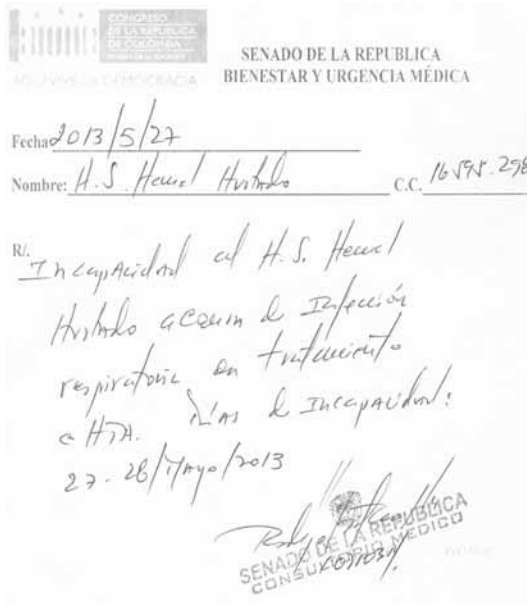 CONGRESO
DE LA REPÚBLICA
DE COLOMBIA
AQUÍ VIVE LA DEMOCRACIA
SENADO DE LA REPUBLICA
BIENESTAR Y URGENCIA MÉDICA
Fecha 2013/5/27
Nombre: H.S. Hemel Hurtado C.C. 16.595.298
R/.
Incapacidad al H.S. Hemel
Hurtado a causa de Infección
respiratoria en tratamiento
e HTA. Días de Incapacidad:
27-28/Mayo/2013
SENADO DE LA REPUBLICA
CONSULTORIO MEDICO